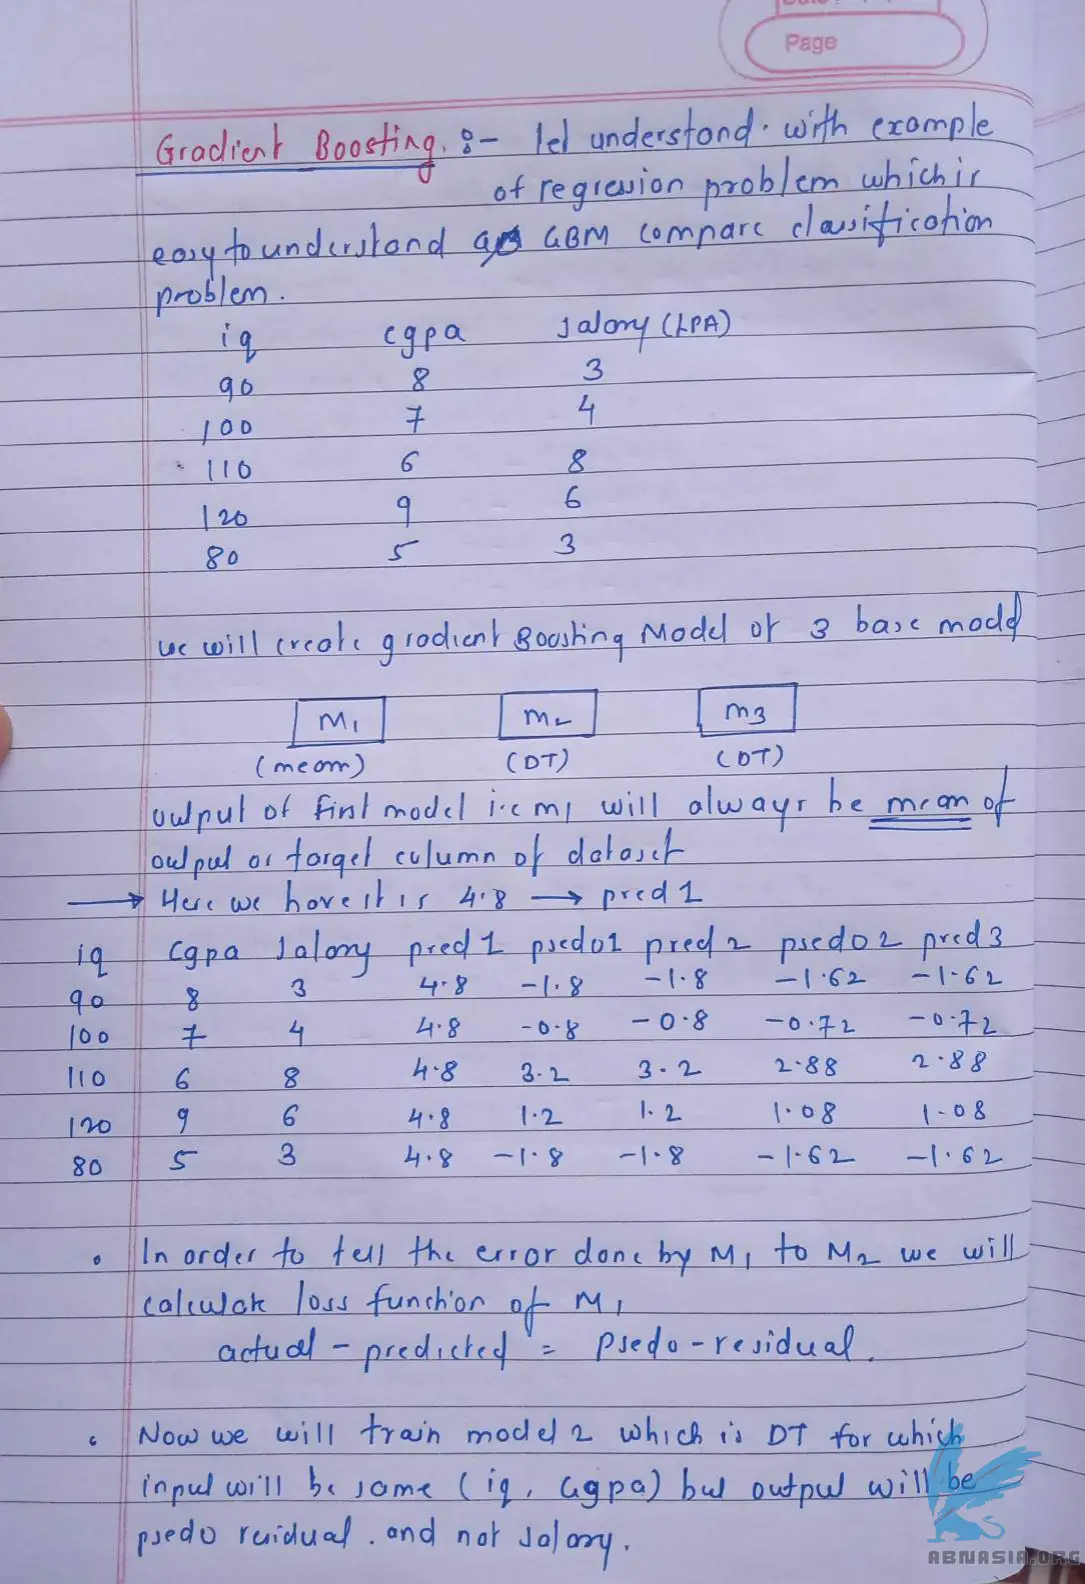 Page
Gradient Boosting :- let understand with example
of regression problem which is
easy to understand GBM compare classification
problem.
iq cgpa salary (LPA)
90 8 3
100 7 4
110 6 8
120 9 6
80 5 3
we will create gradient Boosting Model of 3 base model
M1 m2 m3
(mean) (DT) (DT)
output of first model i.e m1 will always be mean of
output or target column of dataset
→ Here we have it is 4.8 → pred 1
iq cgpa salary pred 1 psedo1 pred 2 psedo 2 pred 3
90 8 3 4.8 -1.8 -1.8 -1.62 -1.62
100 7 4 4.8 -0.8 -0.8 -0.72 -0.72
110 6 8 4.8 3.2 3.2 2.88 2.88
120 9 6 4.8 1.2 1.2 1.08 1.08
80 5 3 4.8 -1.8 -1.8 -1.62 -1.62
• In order to tell the error done by M1 to M2 we will
calculate loss function of M1
actual - predicted = psedo-residual.
• Now we will train model 2 which is DT for which
input will be same (iq, cgpa) but output will be
psedo residual. and not salary.
ABNASIA.ORG